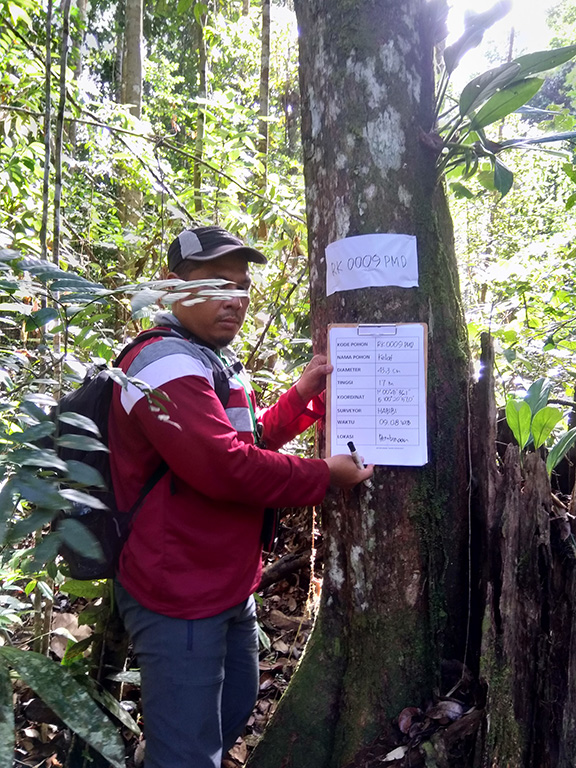 RK 0009 PMD
KODE POHON RK 0009 PMD
NAMA POHON
DIAMETER cm
TINGGI 17 m
KOORDINAT
SURVEYOR HABIBI
WAKTU 09:08 WIB
LOKASI